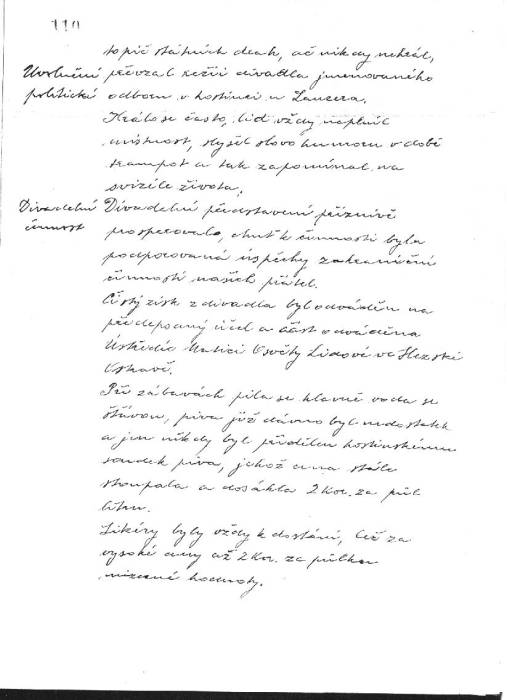 110
topič státních drah, ač nikdy nehrál,
Uvolnění převzal režii divadla jmenovaného
politické odboru v hostinci u Lancera.
Hrálo se často, lid vždy naplnil
místnost, slyšel slovo humoru v době
trampot a tak zapomínal na
svízele života.
Divadelní Divadelní představení příznivě
činnost prosperovala, chuť k činnosti byla
podporovaná úspěchy zahraniční
činnosti našich přátel.
Čistý zisk z divadla byl odváděn na
předepsaný účel a část odváděna
Ústřední Matici Osvěty Lidové ve Slezské
Ostravě.
Při zábavách pila se hlavně voda se
šťávou, piva již dávno byl nedostatek
a jen někdy byl přidělen hostinskému
soudek piva, jehož cena stále
stoupala a dosáhla 2 Kor. za půl
litru.
Likéry byly vždy k dostání, leč za
vysoké ceny až 2 Kor. za půlku
mizerné hodnoty.